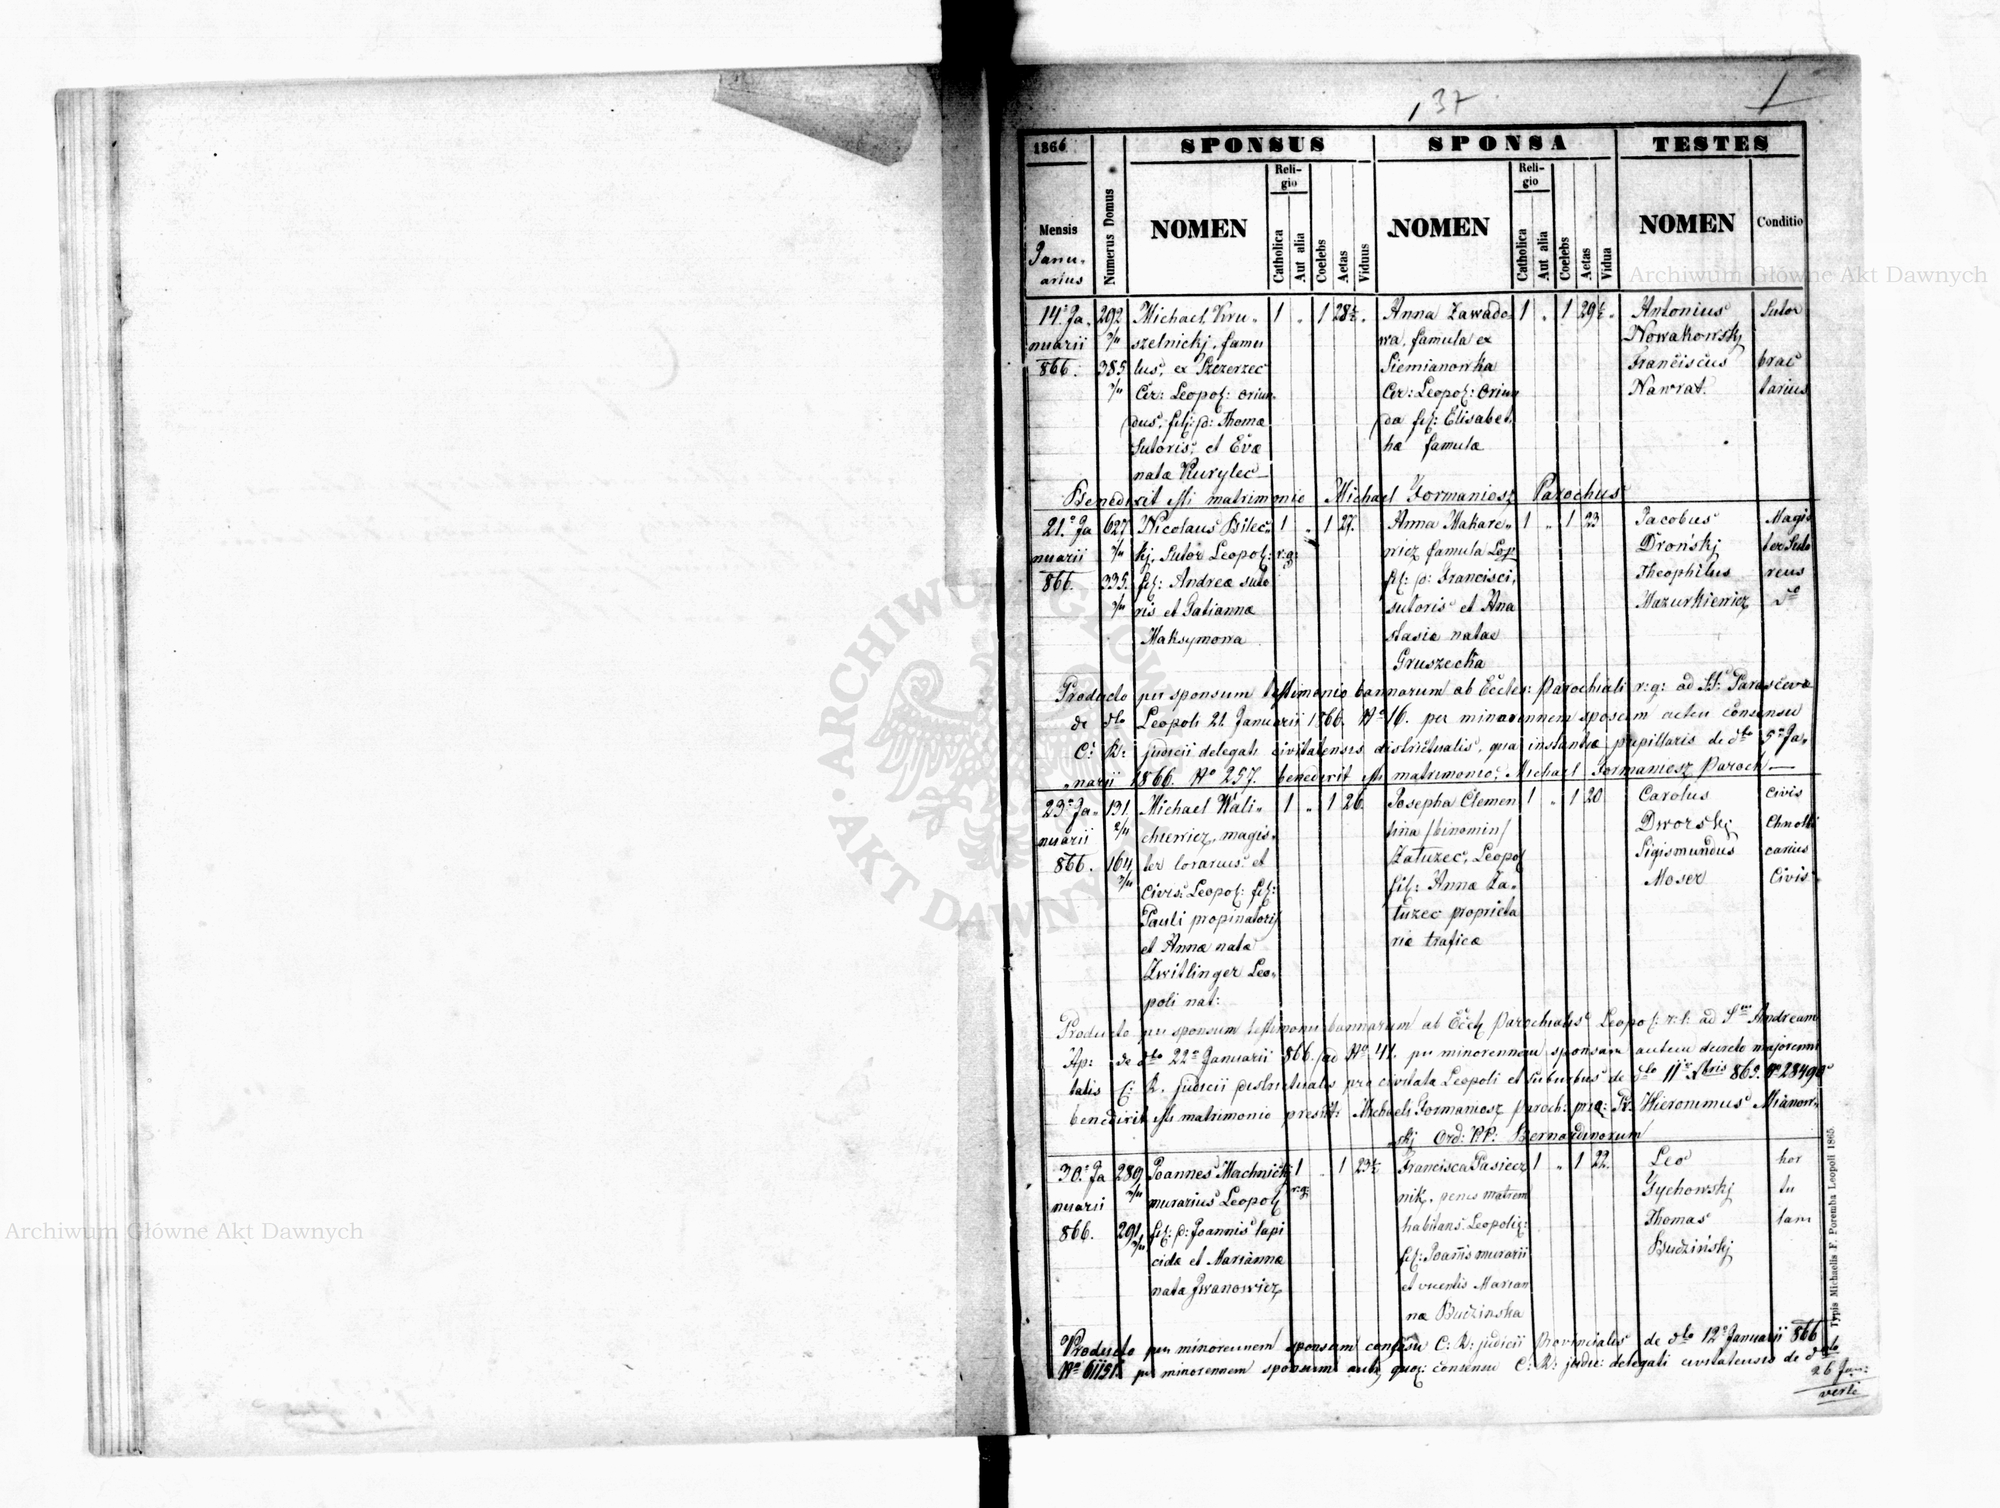 37
1
1866
SPONSUS
SPONSA
TESTES
Mensis
Janu-
arius
Numerus Domus
NOMEN
Reli-
gio
Catholica
Aut alia
Coelebs
Aetas
Viduus
NOMEN
Reli-
gio
Catholica
Aut alia
Coelebs
Aetas
Vidua
NOMEN
Conditio
14ª Ja-
nuarii
866.
292
2/4
385
2/4
Michael Kru-
szelnickj, famu
lus, ex Szczerzec
Cir: Leopol: oriun-
dus, fil: p: Thomæ
Sutoris, et Evæ
natæ Kurylec
1 „ 1 28½ „
Anna Zawado-
wa, famula ex
Siemianowka
Cir: Leopol: oriun
da fil: Elisabet
hæ famulæ
1 „ 1 29½ „
Antonius
Nowakowskj
Franciscus
Nawrat.
Sutor
brac
tarius
Benedixit isti matrimonio Michael Formaniosz Parochus
21ª Ja
nuarii
866.
627
2/4
335.
2/4
Nicolaus Bilec-
kj, Sutor Leopol:
fil: Andreæ suto
ris et Tatiannæ
Maksymowa
1
r: g:
„ 1 27.
Anna Makare-
wicz famula Leop
fil: p: Francisci,
sutoris et Ana
stasiæ natae
Gruszecka
1 „ 1 23
Jacobus
Drońskj
Theophilus
Mazurkiewicz
Magis
ter Suto
reus
dto
Producto per sponsum testimonio bannorum ab Eccles: Parochiali r: g: ad St: Parascevæ
de dto Leopoli 21 Januarii 1866. No 16. per minorennem sposam autem consensu
C: R: judicii delegati civitatensis districtualis, qua instantiæ pupillaris de dto 5ª Ja-
nuarii 1866. No 257. benedixit isti matrimonio, Michael Formaniosz Paroch
23ª Ja-
nuarii
866.
131.
2/4
164
2/4
Michael Wali-
chiewicz, magis-
ter lorarius et
Civis Leopol: fil:
Pauli propinatoris
et Annæ nata
Zwitlinger Leo-
poli nat:
1 „ 1 26
Josepha Clemen
tina /binomin/
Załuzec, Leopol
fil: Annæ Za-
łuzec proprieta
riæ traficæ
1 „ 1 20
Carolus
Dworskj
Sigismundus
Moser
Civis
Civis
Producto per sponsum testimonio bannorum ab Eccl: Parochialis Leopol: r: l: ad Sum Andream
Ap: de dto 22ª Januarii 866. ad No 41. per minorennem sponsam autem decreto majorenni
tatis C: R. judicii districtualis pro civitate Leopoli et suburbiis de dto 11ª Xbris 865. No 28490
benedixit isti matrimonio Michaeli Formaniosz Paroch: Hieronimus Mianow-
skj Ord: P.P: Bernardinorum
30ª Ja
nuarii
866.
289
2/4
291
2/4
Joannes Machnickj
murarius Leopol
fil: p: Joannis lapi
cidæ et Mariannæ
nata Jwanowicz
1
r: g:
„ 1 23½
Francisca Pasiecz
nik, penes matrem
habitans Leopoli:
fil: Joannis murarii
et viventis Marian
næ Budzinska
1 „ 1 22.
Leo
Tychowskj
Thomas
Budzińskj
hor
tu
lani
Producto per minorennem sponsum consensu C: R: judicii Provincialis de dto 12ª Januarii 866
No 61151. per minorennem sponsam autem quoq: consensu C: R: judic: delegati civitatensis de dto
26 Jan:
verte
Typis Michaelis F. Poremba Leopoli 1865.
Archiwum Główne Akt Dawnych
Archiwum Główne Akt Dawnych
ARCHIWUM GŁÓWNE · AKT DAWNYCH ·